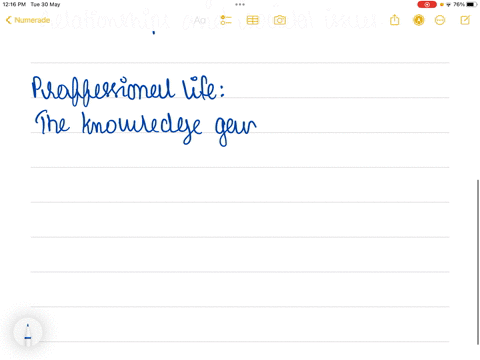 12:16 PM Tue 30 May
76%
Numerade
Aa
Proffessional life:
The knowledge gain